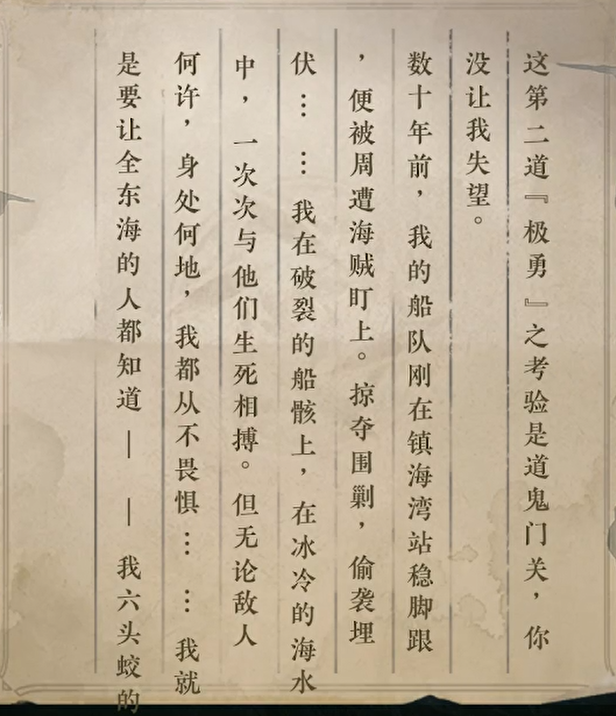 这第二道『极勇』之考验是道鬼门关，你
没让我失望。
数十年前，我的船队刚在镇海湾站稳脚跟
，便被周遭海贼盯上。掠夺围剿，偷袭埋
伏……我在破裂的船骸上，在冰冷的海水
中，一次次与他们生死相搏。但无论敌人
何许，身处何地，我都从不畏惧……我就
是要让全东海的人都知道——我六头蛟的